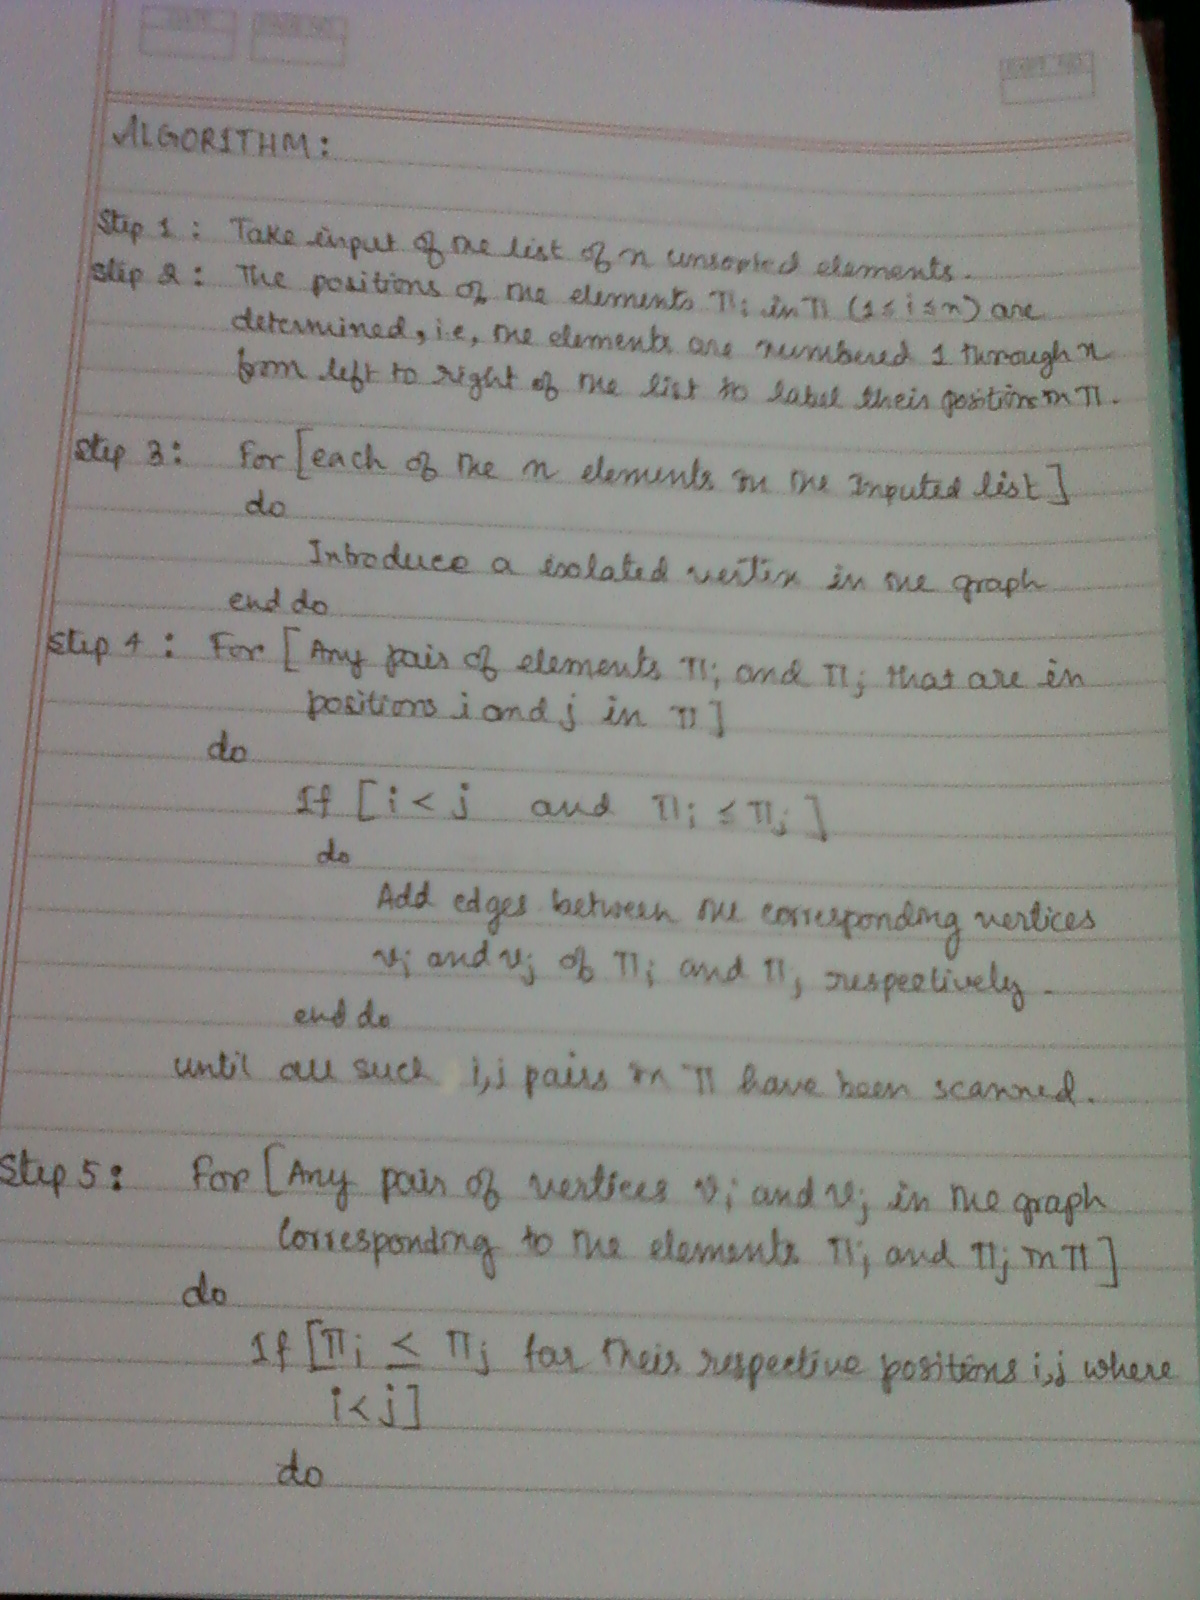 DATE
PAGE NO.
ALGORITHM:
Step 1: Take input of the list of n unsorted elements.
Step 2: The positions of the elements Πi in Π (1≤i≤n) are
determined, i.e, the elements are numbered 1 through n
from left to right of the list to label their positions in Π.
Step 3: For [each of the n elements in the Inputed list]
do
Introduce a isolated vertex in the graph
end do
Step 4: For [Any pair of elements Πi and Πj that are in
positions i and j in Π]
do
If [i < j and Πi ≤ Πj]
do
Add edges between the corresponding vertices
vi and vj of Πi and Πj respectively.
end do
until all such i,j pairs in Π have been scanned.
Step 5: For [Any pair of vertices vi and vj in the graph
Corresponding to the elements Πi and Πj in Π]
do
If [Πi ≤ Πj for their respective positions i,j where
i<j]
do